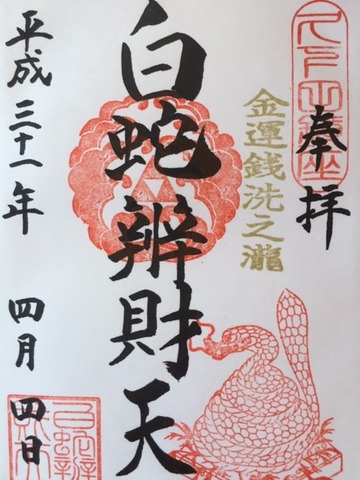 奉拝
金運銭洗之瀧
白蛇辨財天
平成三十一年 四月 四日